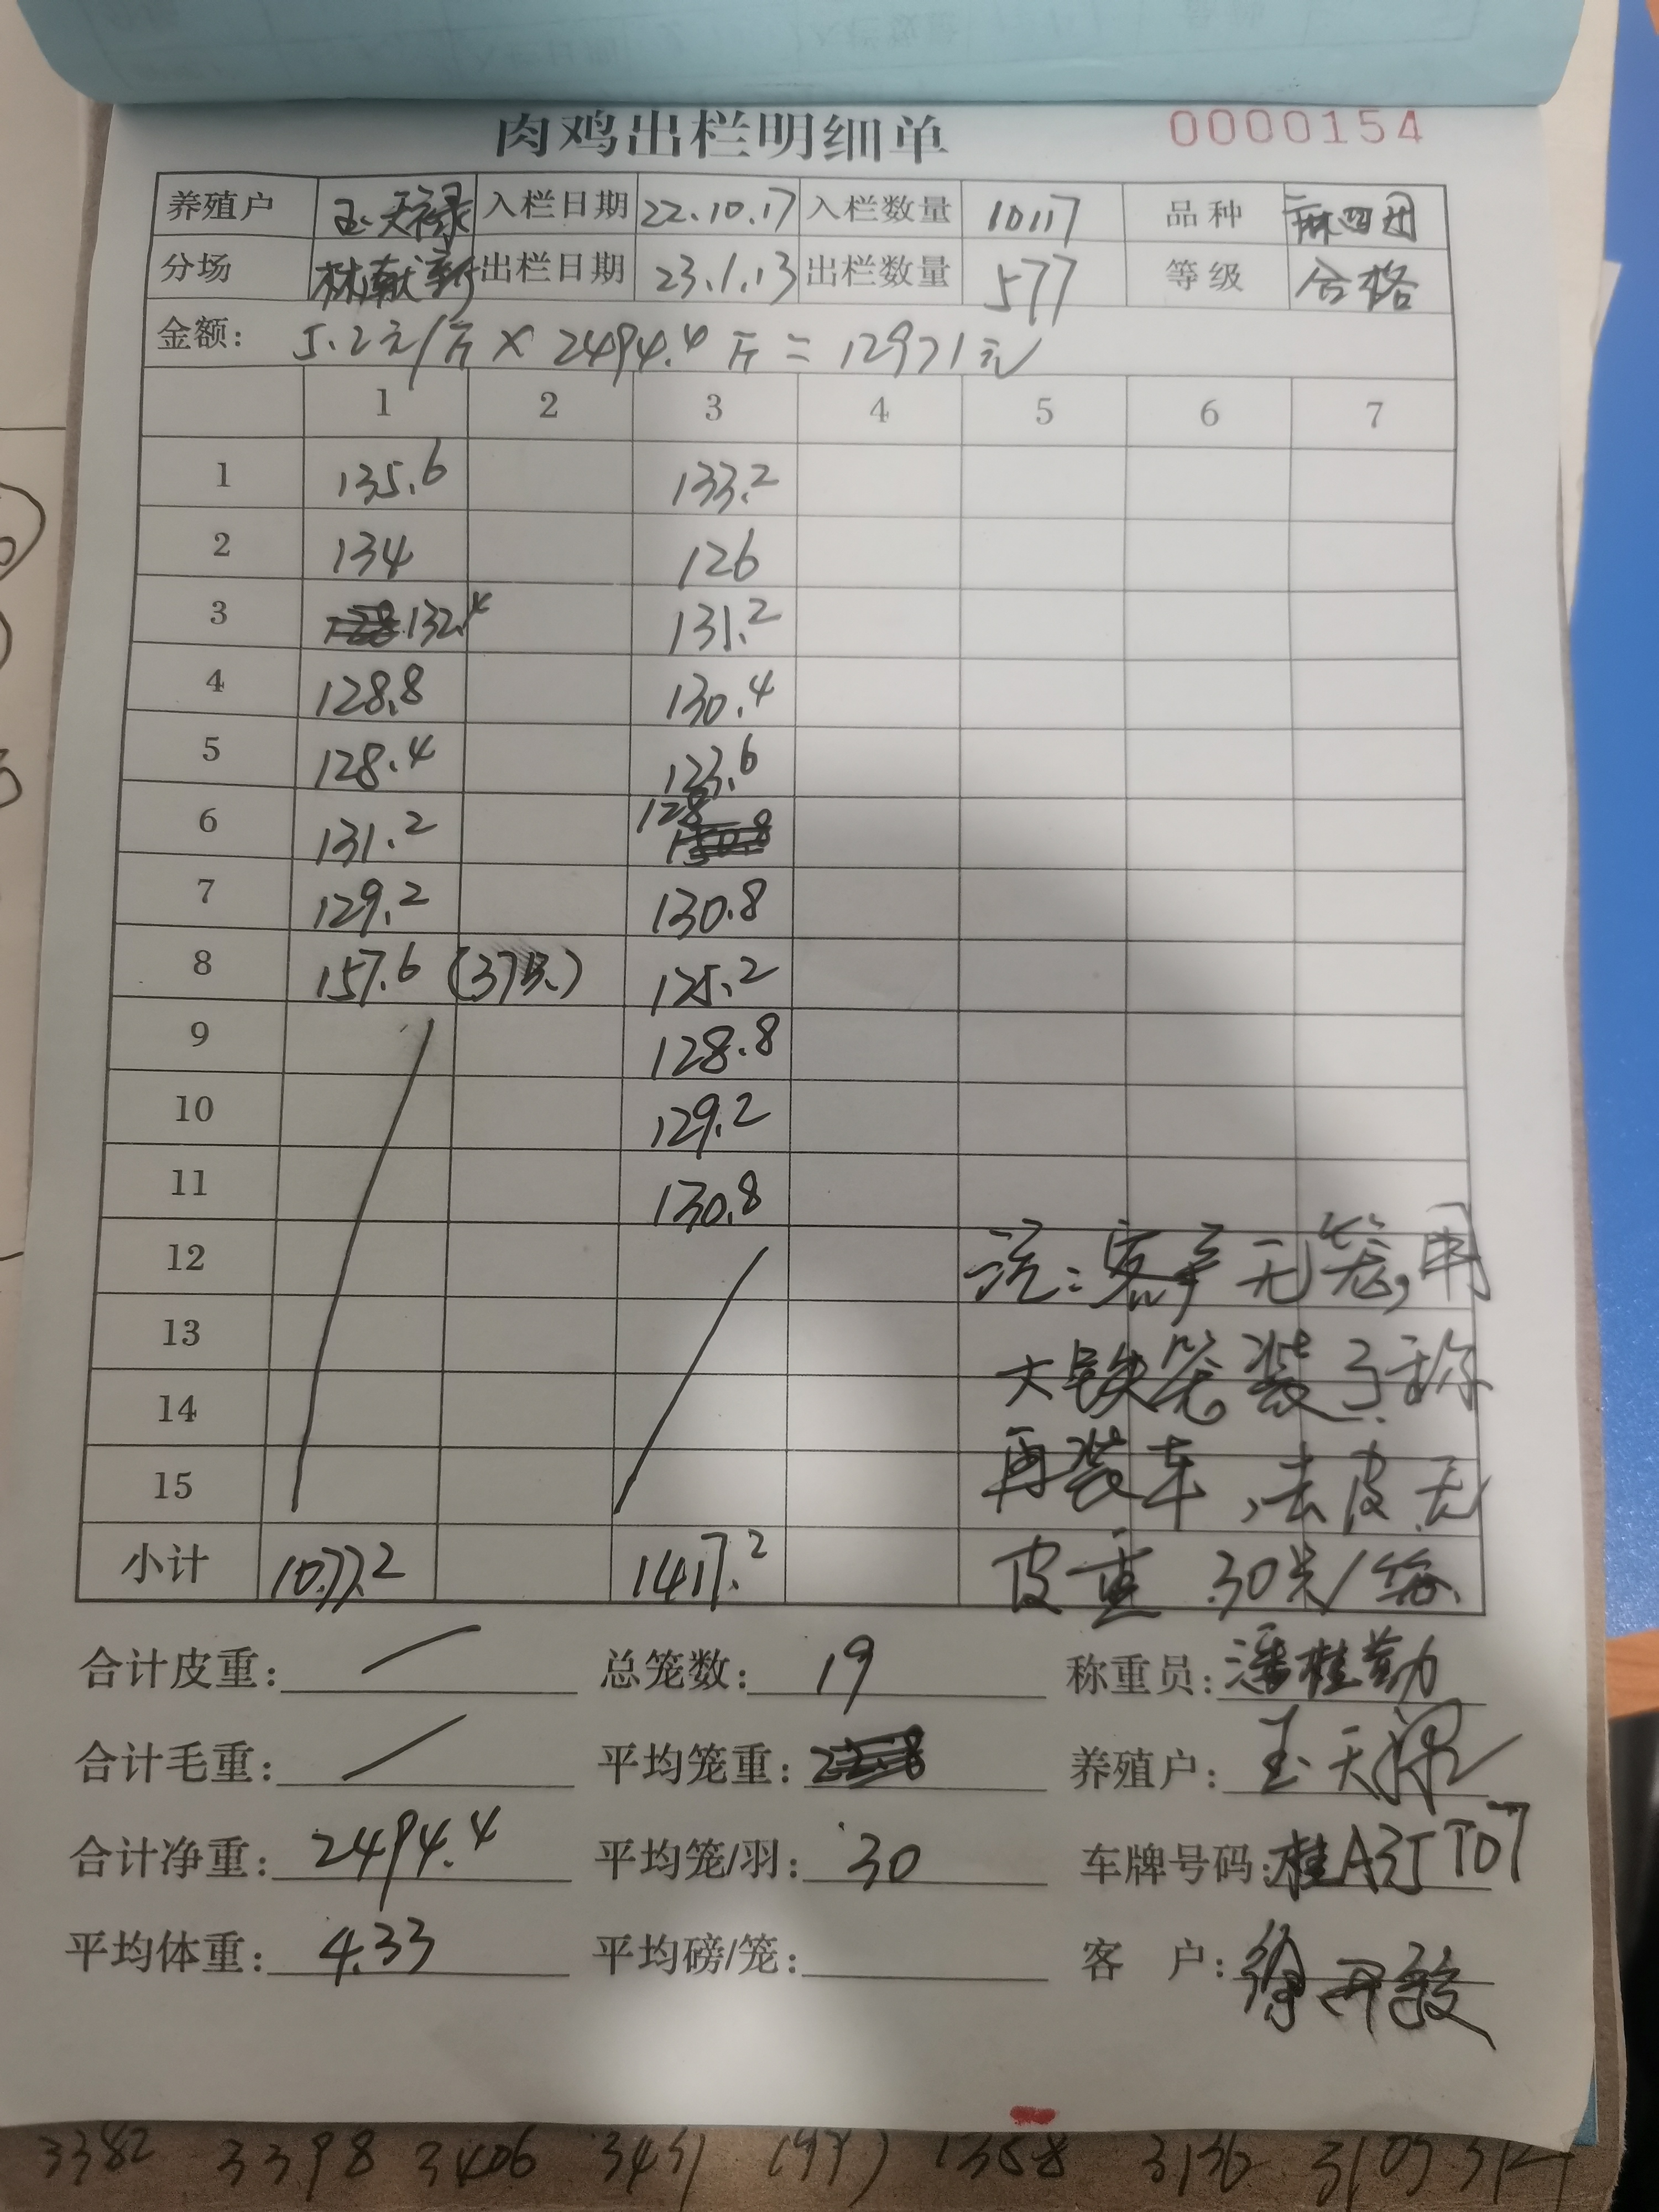 肉鸡出栏明细单 0000154
养殖户 玉天禄 入栏日期 22.10.17 入栏数量 10117 品种 麻四团
分场 林献新 出栏日期 23.1.13 出栏数量 577 等级 合格
金额: 5.2元/斤 × 2494.4斤 = 12971元
1 2 3 4 5 6 7
1 135.6 133.2
2 134 126
3 132.4 131.2
4 128.8 130.4
5 128.4 123.6
6 131.2 128
7 129.2 130.8
8 157.6 (37只) 125.2
9 128.8
10 129.2
11 130.8
12 注:客户无笼,用
13 大铁笼装了称
14
15 再装车,去皮无
小计 1077.2 1417.2 皮重 30只/笼
合计皮重: 总笼数: 19 称重员: 潘桂勤
合计毛重: 平均笼重: 养殖户: 玉天禄
合计净重: 2494.4 平均笼/羽: 30 车牌号码: 桂A3JT07
平均体重: 4.33 平均磅/笼: 客户: 徐
3382 3398 3406 3431 1358 3136 3103